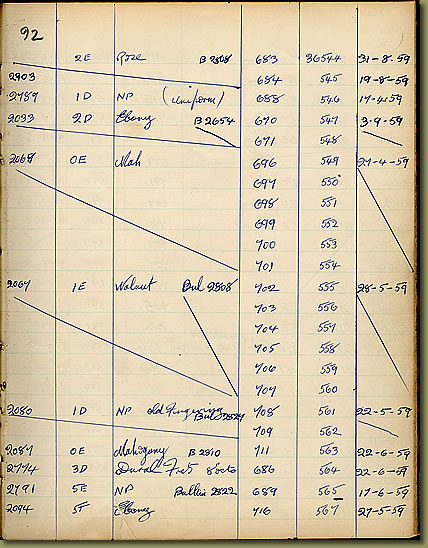 92
2E Rose B 2808 683 36544 31-8-59
2903 684 545 19-8-59
2789 1D NP (Uniform) 688 546 17-4-59
2033 2D Ebony B 2654 670 547 3-9-59
671 548
2068 0E Mah 696 549 27-4-59
697 550
698 551
699 552
700 553
701 554
2067 1E Walnut Bul 2808 702 555 28-5-59
703 556
704 557
705 558
706 559
707 560
2080 1D NP old Bul 708 561 22-5-59
709 562
2087 0E Mahogany B 2810 711 563 22-6-59
2774 3D Dural Fret 686 564 22-6-59
2791 5E NP 2822 689 565 17-6-59
2094 5F Ebony 716 567 27-5-59